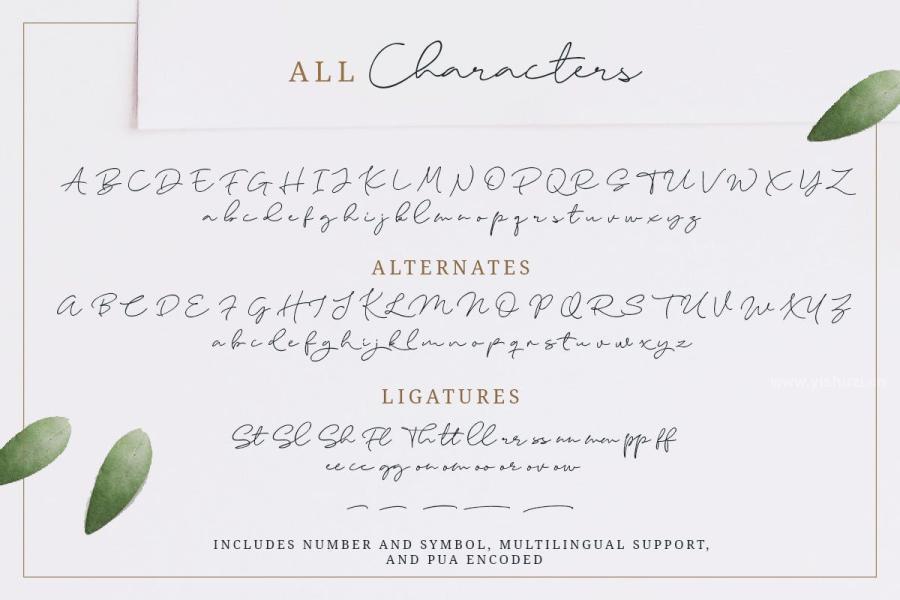 ALL Characters
A B C D E F G H I J K L M N O P Q R S T U V W X Y Z
a b c d e f g h i j k l m n o p q r s t u v w x y z
ALTERNATES
A B C D E F G H I J K L M N O P Q R S T U V W X Y Z
a b c d e f g h i j k l m n o p q r s t u v w x y z
www.yishuzi.cn
LIGATURES
St Sl Sh Fl Th tt ll rr ss nn mm pp ff
ee cc gg on om oo or ov ow
INCLUDES NUMBER AND SYMBOL, MULTILINGUAL SUPPORT,
AND PUA ENCODED